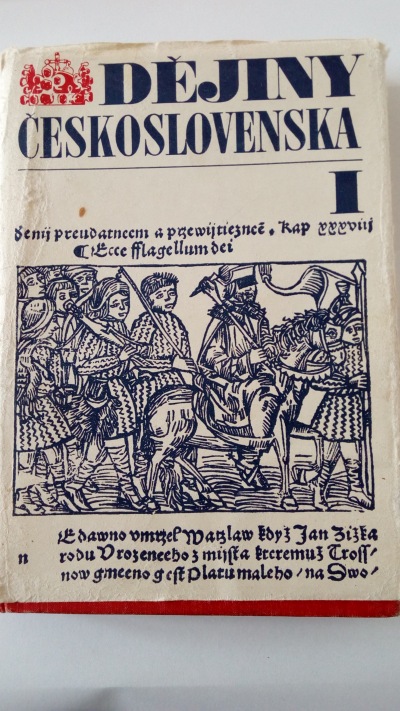 DĚJINY
ČESKOSLOVENSKA
I
denij preudatneem a przewijtiezneē . Kap xxxviij
¶ Ecce fflagellum dei
E dawno vmrzel Watzlaw když Jan Zižka
n rodu Vrozeneeho z mijsta kteremuž Trosſ⸗
now gmeeno geſt Platu maleho / na Swo /